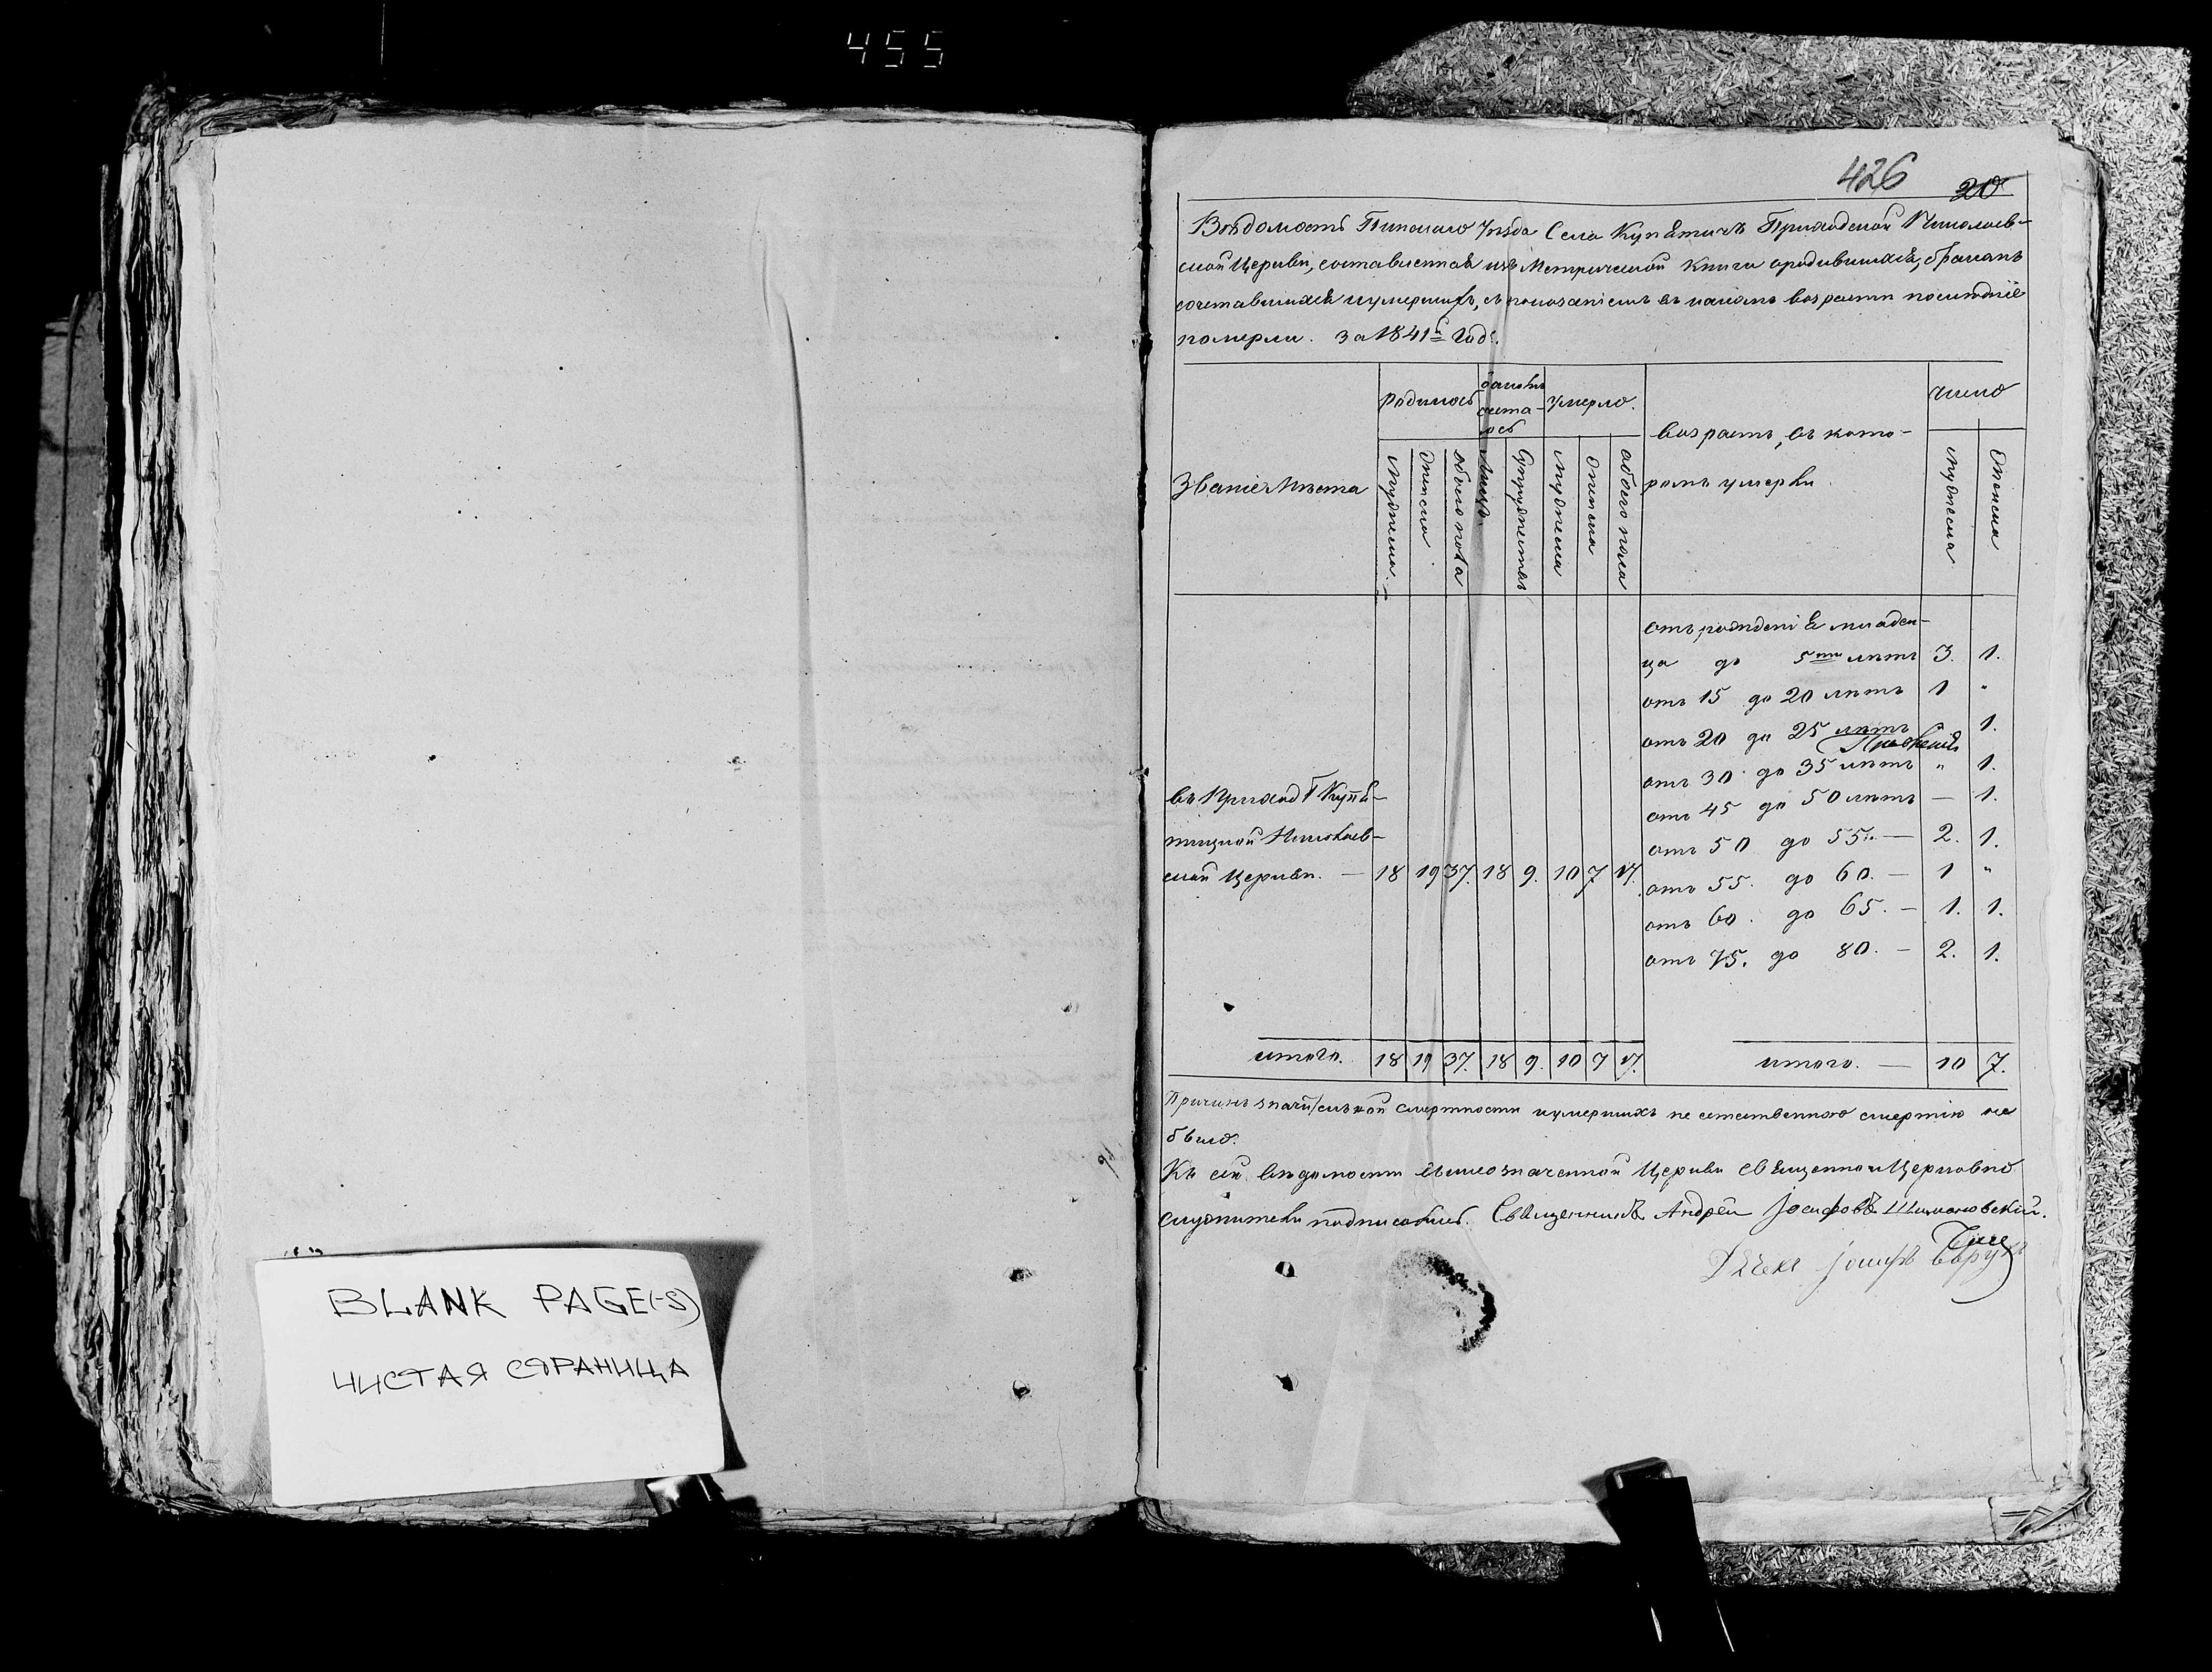 455
426 20
Вѣдомость Пинскаго Уѣзда Села Купятичъ Приходской Николаев-
ской Церкви, составленная изъ Метрической Книги о родившихся, бракомъ
сочетавшихся и умершихъ, съ показаніемъ въ какомъ возрасте последніе
померли. за 1841й Годъ.
Званіе Мѣста
Родилось
браковъ
сочета-
лось
Умерло.
возрастъ, въ кото-
ромъ умерли
число
Мужеска.
Женска.
обоего пола
Лицъ.
Супружествъ
Мужеска
Женска
обоего пола
Мужеска
Женска
отъ рожденія младен-
ца до 5ти летъ 3. 1.
отъ 15 до 20 летъ 1 "
отъ 20 до 25 летъ 1.
отъ 30 до 35 летъ " 1.
отъ 45 до 50 летъ — 1.
отъ 50 до 55. — 2. 1.
отъ 55. до 60. — 1 "
отъ 60. до 65. — 1. 1.
отъ 75. до 80. — 2. 1.
въ Приходѣ Купя-
тицкой Николаев-
ской Церкви. — 18 19 37. 18 9. 10 7 17.
итого. 18 19 37. 18 9. 10 7 17.
итого. — 10 7.
Причинъ значительной смертности и умершихъ не естественною смертію не
было.
Къ сей ведомости вышеозначенной Церкви Священно и Церковно
служители подписались. Священникъ Андрей Іосифовъ Шимановскій.
Дячекъ Іосифъ
BLANK PAGE(-S)
ЧИСТАЯ СТРАНИЦА